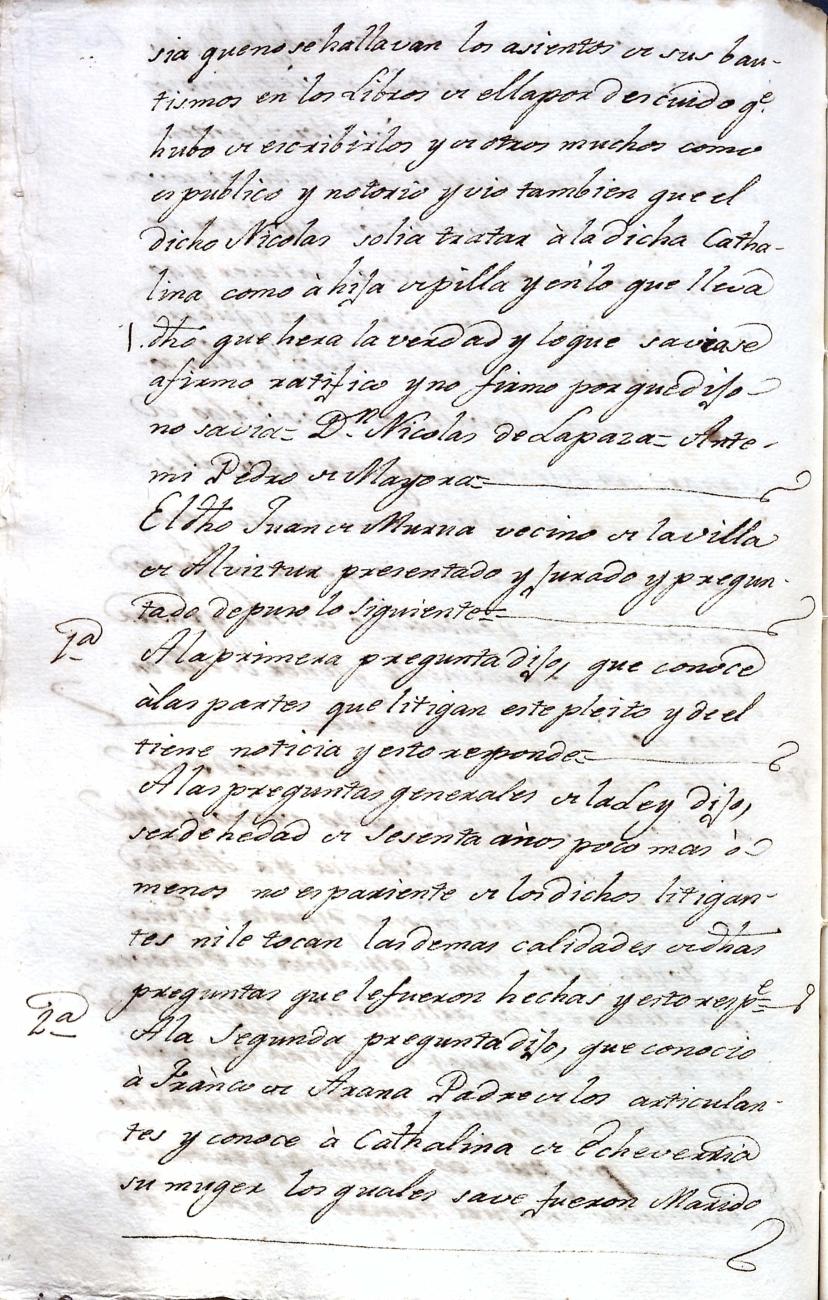 sia que no se hallavan los asientos de sus bau-
tismos en los Libros de ella por descuido qe.
hubo de escribirlos y de otros muchos como
es publico y notorio y vio tambien que el
dicho Nicolas solia tratar à la dicha Catha-
lina como à hija de pilla y en lo que lleva
dho que hera la verdad y lo que savia se
afirmo ratifico y no firmo por que dijo
no savia= Dn. Nicolas de Lapaza= Ante
mi Pedro de Mayora=
El dho Juan de Murua vecino de la villa
de Alviztur presentado y jurado y pregun-
tado depuso lo siguiente=
1a A la primera pregunta dijo, que conoce
à las partes que litigan este pleito y de el
tiene noticia y esto responde=
A las preguntas generales de la Ley dijo,
ser de hedad de sesenta años poco mas ò
menos no es pariente de los dichos litigan-
tes ni le tocan las demas calidades de dhas
preguntas que le fueron hechas y esto respe=
2a A la segunda pregunta dijo, que conocio
à Franco de Arana Padre de los articulan-
tes y conoce à Cathalina de Echeverria
su muger los quales save fueron Marido